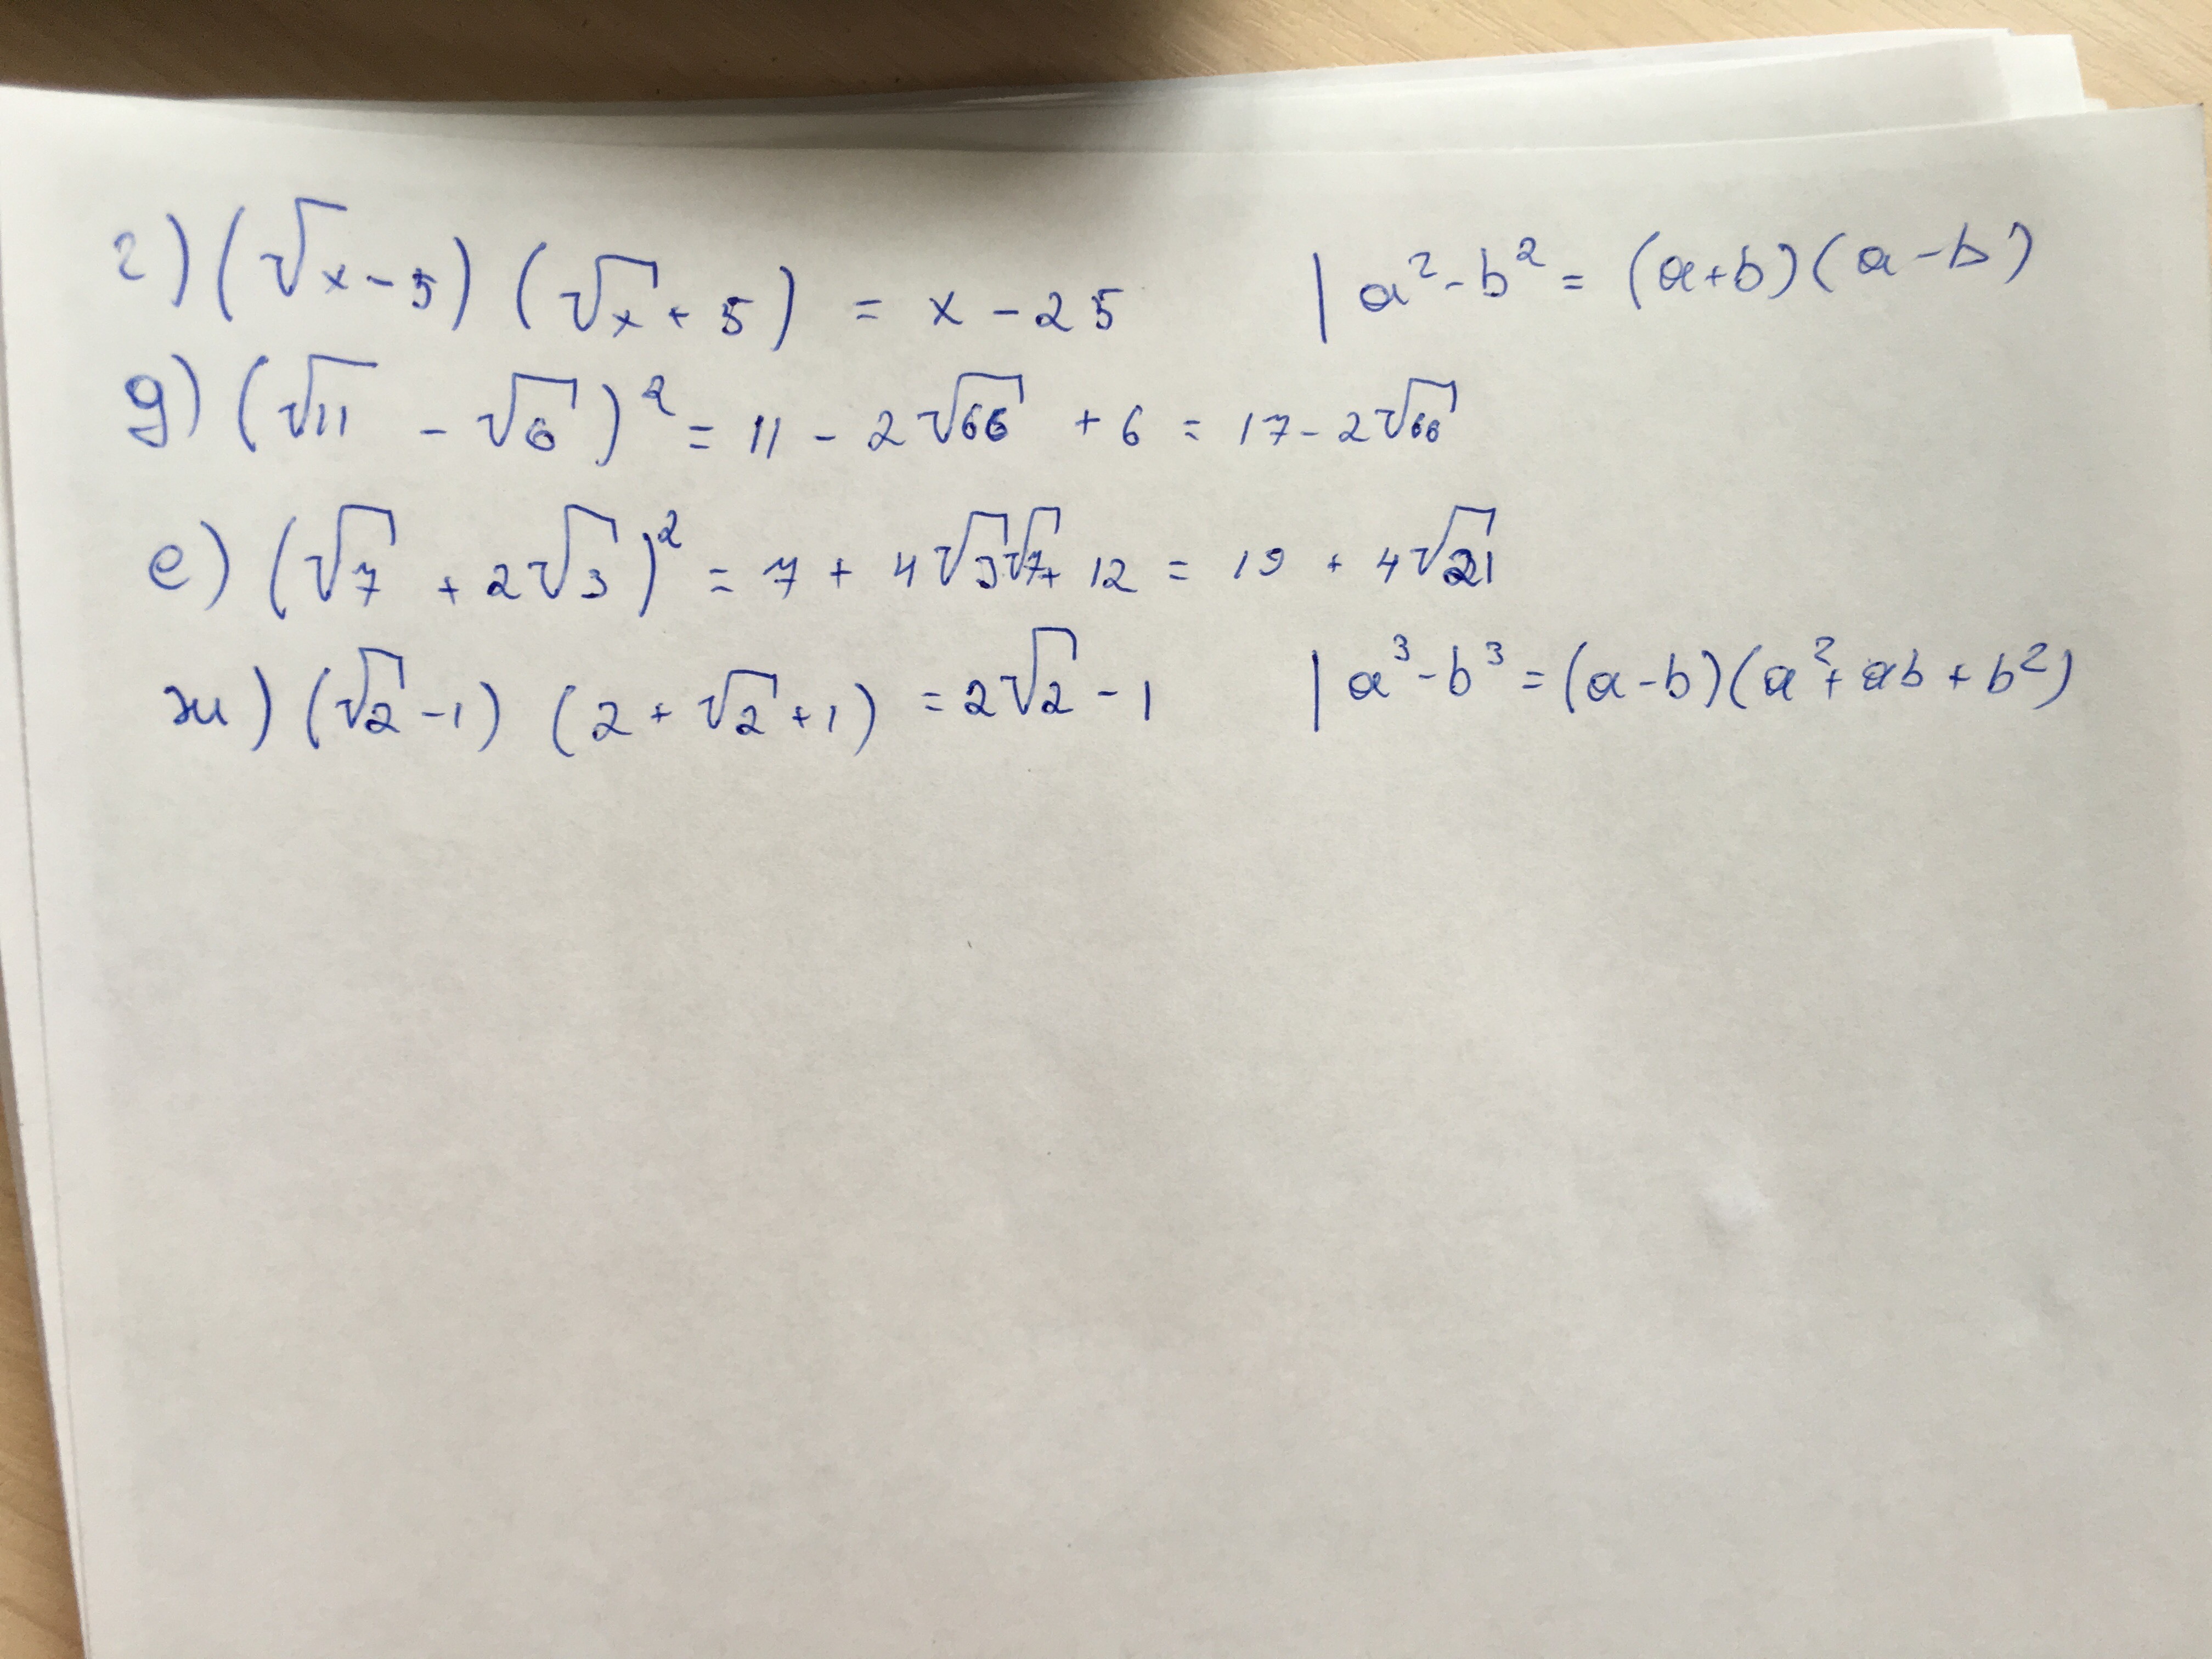 г) (√x - 5) (√x + 5) = x - 25 | a² - b² = (a+b)(a-b)
g) (√11 - √6)² = 11 - 2√66 + 6 = 17 - 2√66
е) (√7 + 2√3)² = 7 + 4√3√7 + 12 = 19 + 4√21
ж) (√2 - 1) (2 + √2 + 1) = 2√2 - 1 | a³ - b³ = (a-b)(a² + ab + b²)